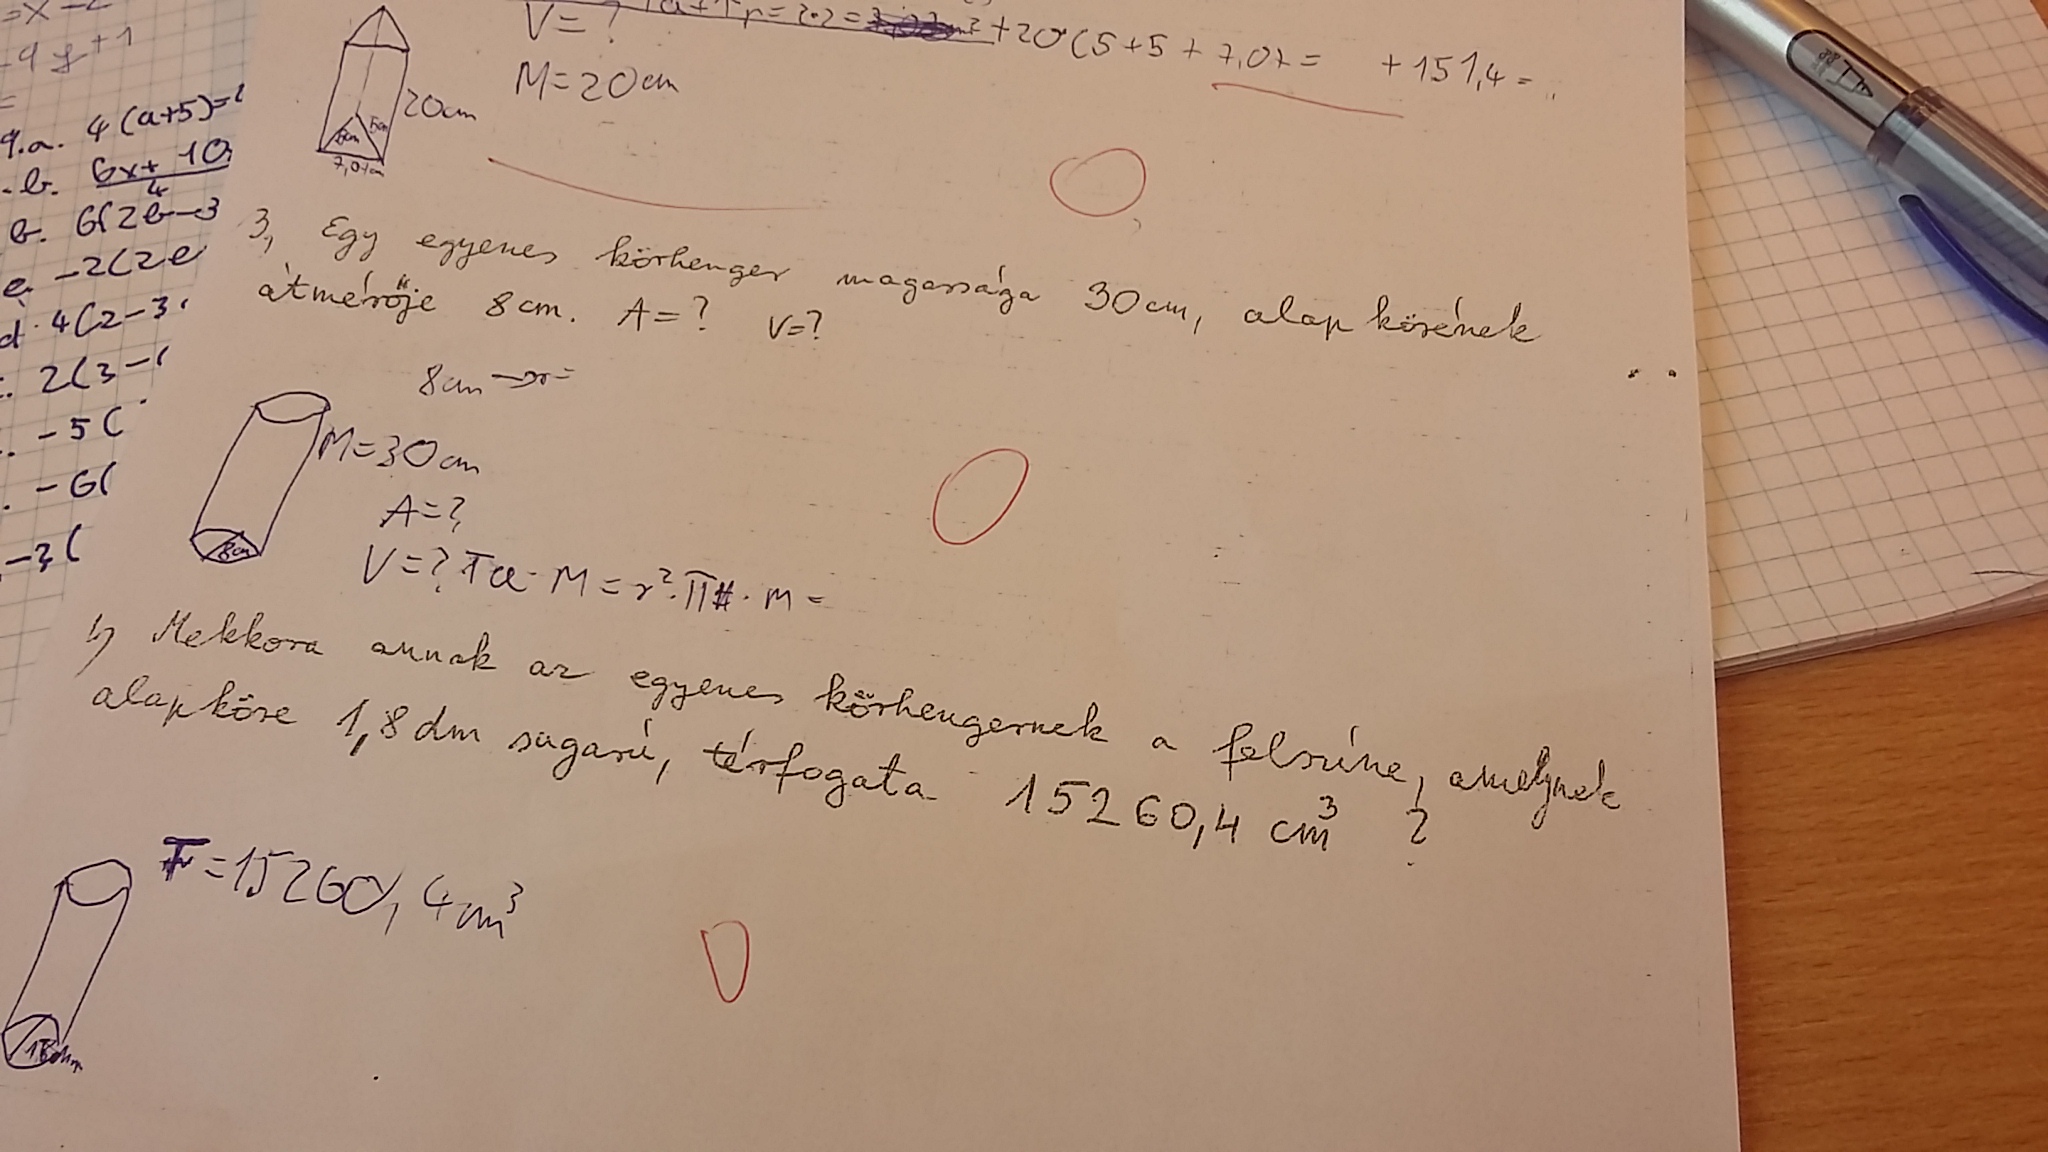 =x-2
-9y+1
=
9.a. 4(a+5)=
.b. 6x+10
4
b. 6(2b-3
e. -2(2e
d. 4(2-3
2(3-
-5(
-6(
-3(
V=? =2·2= +20(5+5+7,07= +151,4=
M=20cm
20cm
5cm
7,07cm
3, Egy egyenes körhenger magassága 30cm, alap körének
átmérője 8cm. A=? V=?
8cm→r=
M=30cm
A=?
8cm
V=? Ta·M=r²·π·m=
Mekkora annak az egyenes körhengernek a felszíne, amelynek
alapköre 1,8dm sugarú, térfogata 15260,4 cm³ ?
T=15260,4cm³